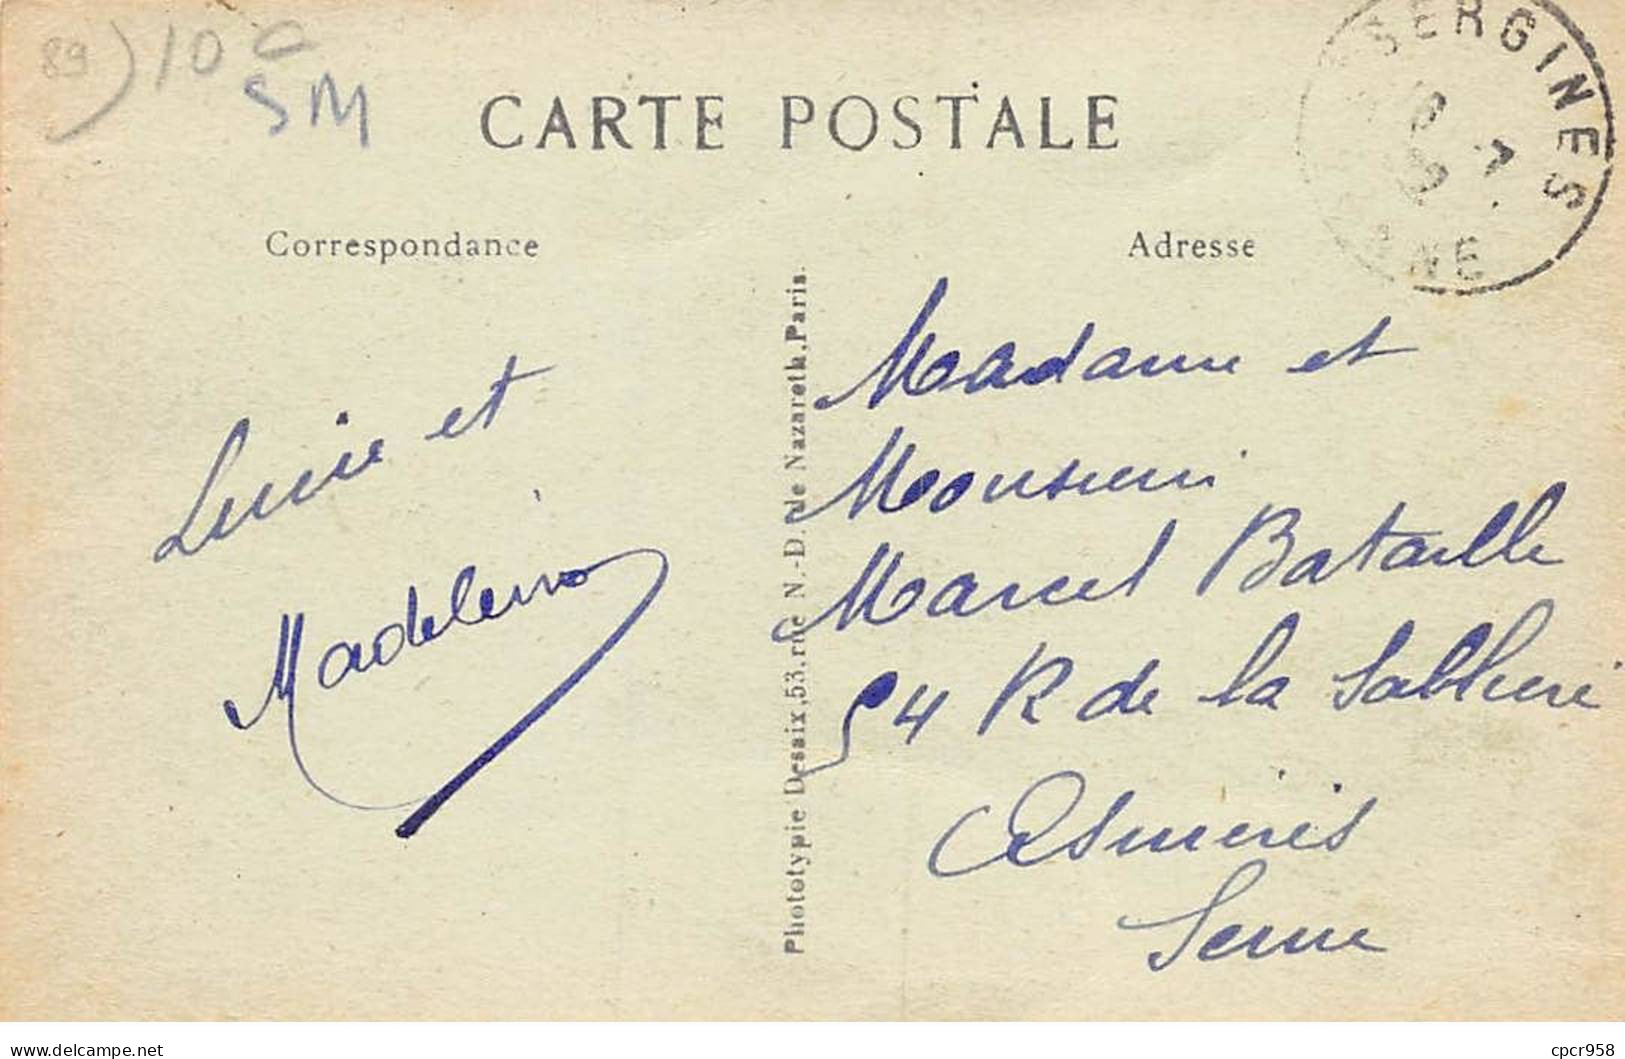 89) 10 c
SM
CARTE POSTALE
SERGINES
Correspondance
Adresse
Lucie et
Madeleine
Phototypie Desaix, 53, rue N.-D. de Nazareth, Paris.
Madame et
Monsieur
Marcel Bataille
54 R de la Sablière
Asnières
Seine
delcampe.net
cpcr958